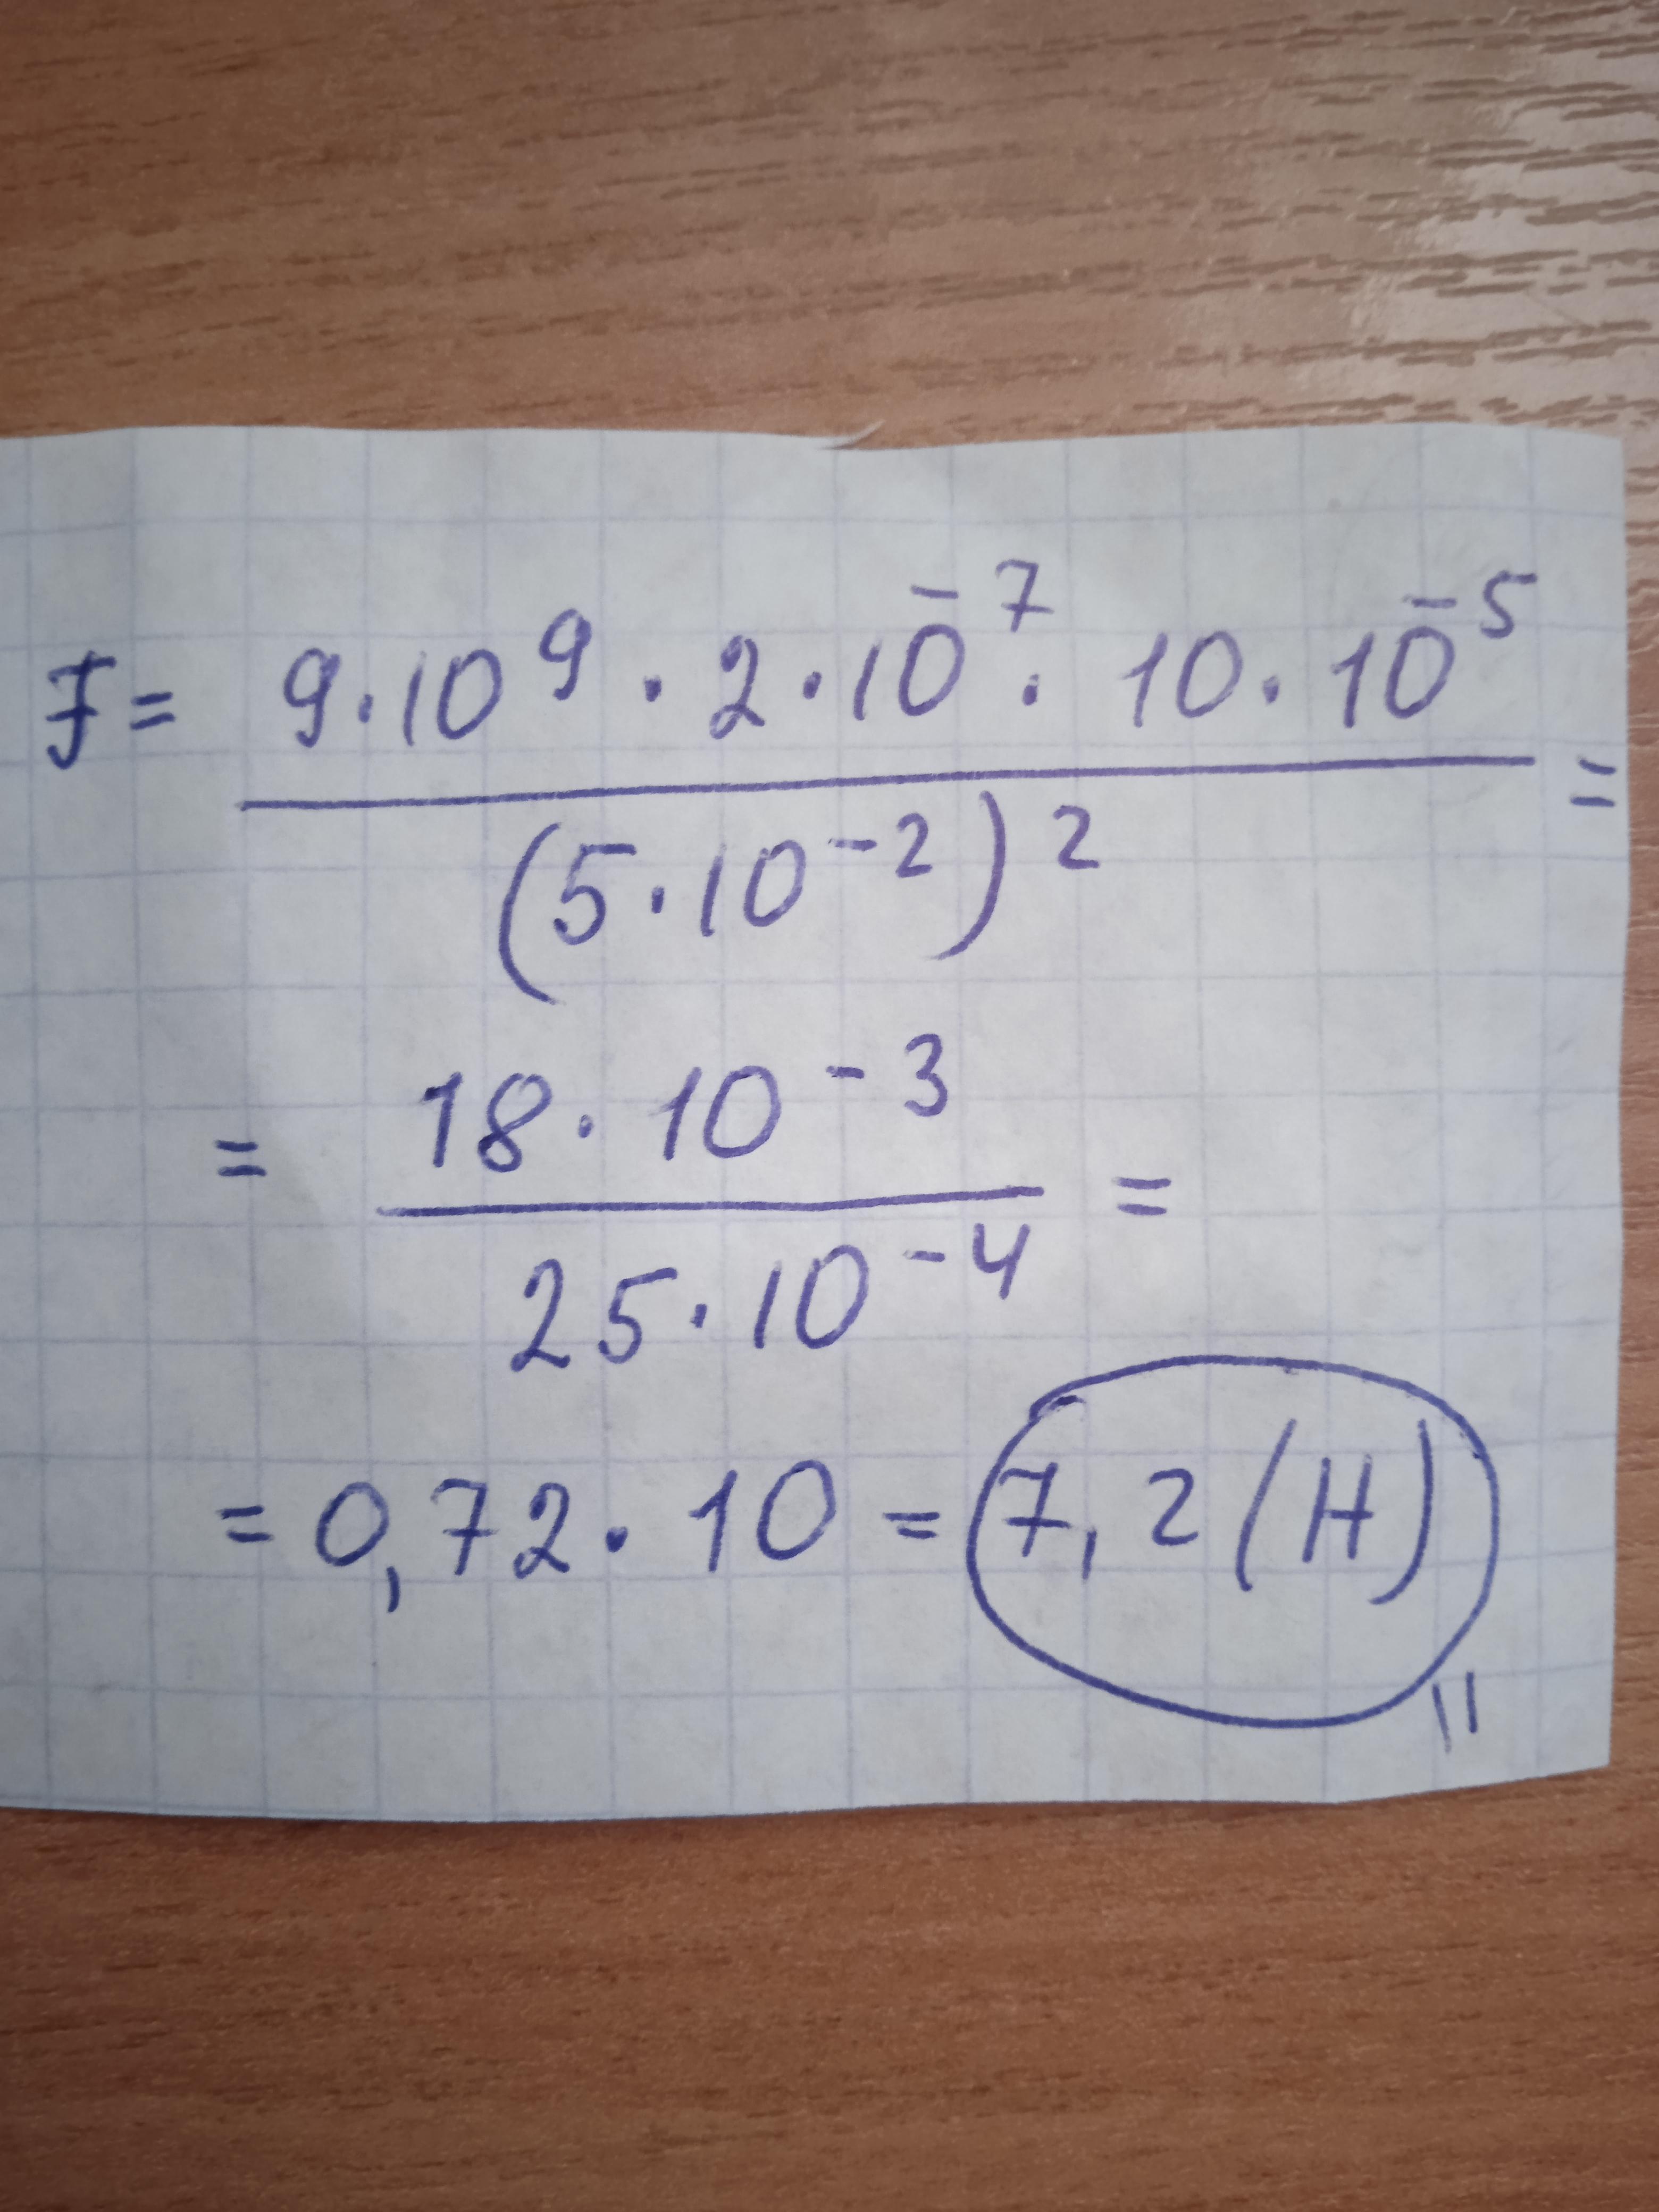 F = 9·10⁹ · 2·10⁻⁷ · 10·10⁻⁵ =
(5·10⁻²)²
= 18·10⁻³ =
25·10⁻⁴
= 0,72·10 = 7,2 (Н)